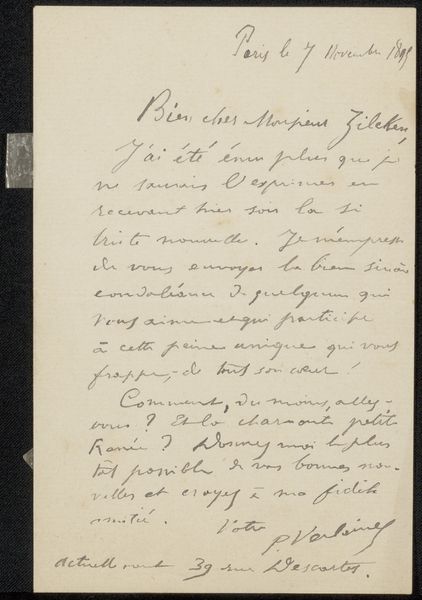 Paris le 7 Novembre 1895
Bien cher Monsieur Zilcken,
J'ai été ému plus que je
ne saurais l'exprimer en
recevant hier soir la si
triste nouvelle. Je m'empresse
de vous envoyer la bien sincère
condoléance de quelqu'un qui
vous aime et qui participe
à cette peine unique qui vous
frappe, - de tout son cœur !
Comment, du moins, allez-
vous ? Et la charmante petite
Renée ? Donnez moi le plus
tôt possible de vos bonnes nou-
velles et croyez à ma fidèle
amitié.
Votre
P. Verlaine
actuellement 39 rue Descartes.